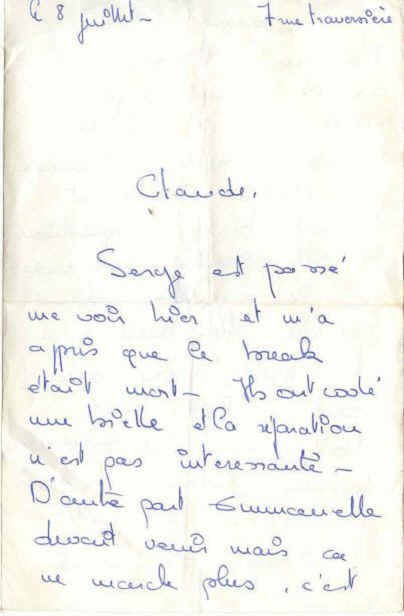 le 8 juillet - 7 rue traversière
Claude,
Serge est passé
me voir hier et m'a
appris que le break
était mort - Ils ont coulé
une bielle et la réparation
n'est pas interessante -
D'autre part Emmanuelle
devait venir mais ca
ne marche plus, c'est